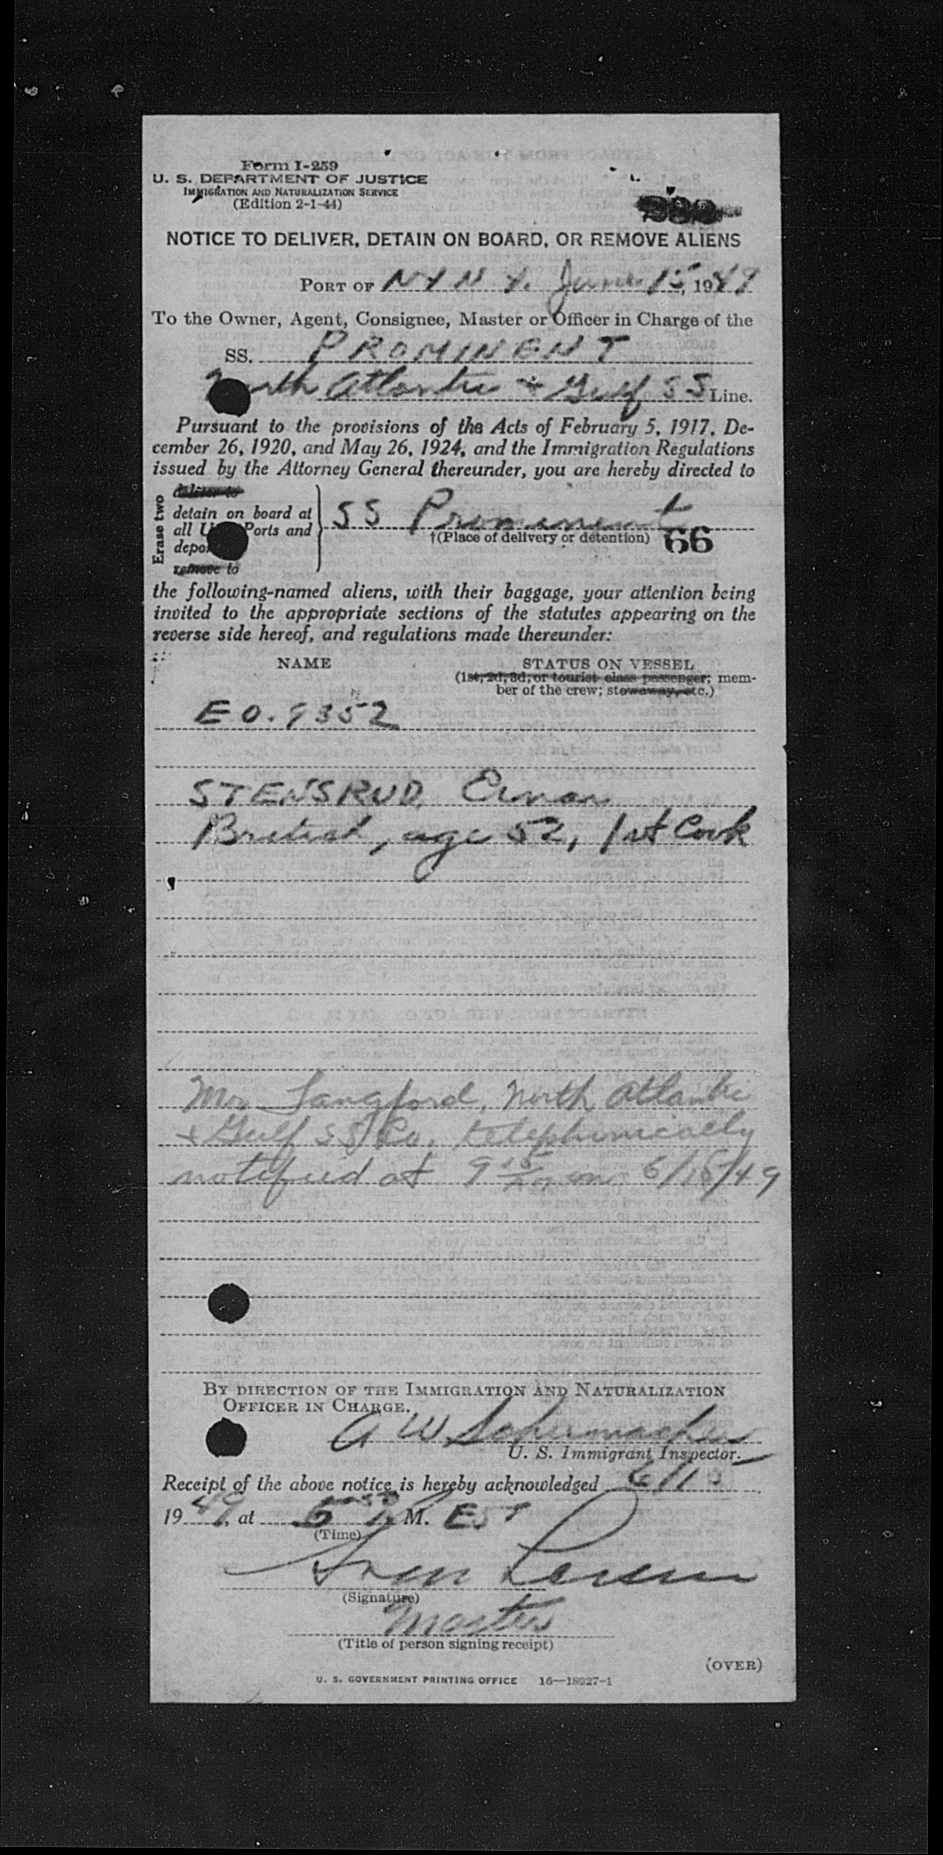 Form I-259
U. S. DEPARTMENT OF JUSTICE
IMMIGRATION AND NATURALIZATION SERVICE
(Edition 2-1-44)
NOTICE TO DELIVER, DETAIN ON BOARD, OR REMOVE ALIENS
PORT OF N Y N Y. June 15, 1949
To the Owner, Agent, Consignee, Master or Officer in Charge of the
SS. PROMINENT
North Atlantic & Gulf SS Line.
Pursuant to the provisions of the Acts of February 5, 1917, De-
cember 26, 1920, and May 26, 1924, and the Immigration Regulations
issued by the Attorney General thereunder, you are hereby directed to
Erase two
deliver to
detain on board at
all U Ports and
depo
remove to
SS Prominent
†(Place of delivery or detention) 66
the following-named aliens, with their baggage, your attention being
invited to the appropriate sections of the statutes appearing on the
reverse side hereof, and regulations made thereunder:
NAME STATUS ON VESSEL
(1st, 2d, 3d, or tourist class passenger; mem-
ber of the crew; stowaway, etc.)
EO. 9352
STENSRUD, Einar
British, age 52, 1st Cook
Mr. Langford, North Atlantic
& Gulf SS Co. telephonically
notified at 9 on 6/15/49
BY DIRECTION OF THE IMMIGRATION AND NATURALIZATION
OFFICER IN CHARGE.
A W Schermacher
U. S. Immigrant Inspector.
Receipt of the above notice is hereby acknowledged 6/15
1949, at 5 P. M. EST
(Time)
(Signature)
Master
(Title of person signing receipt)
(OVER)
U. S. GOVERNMENT PRINTING OFFICE 16—18927-1